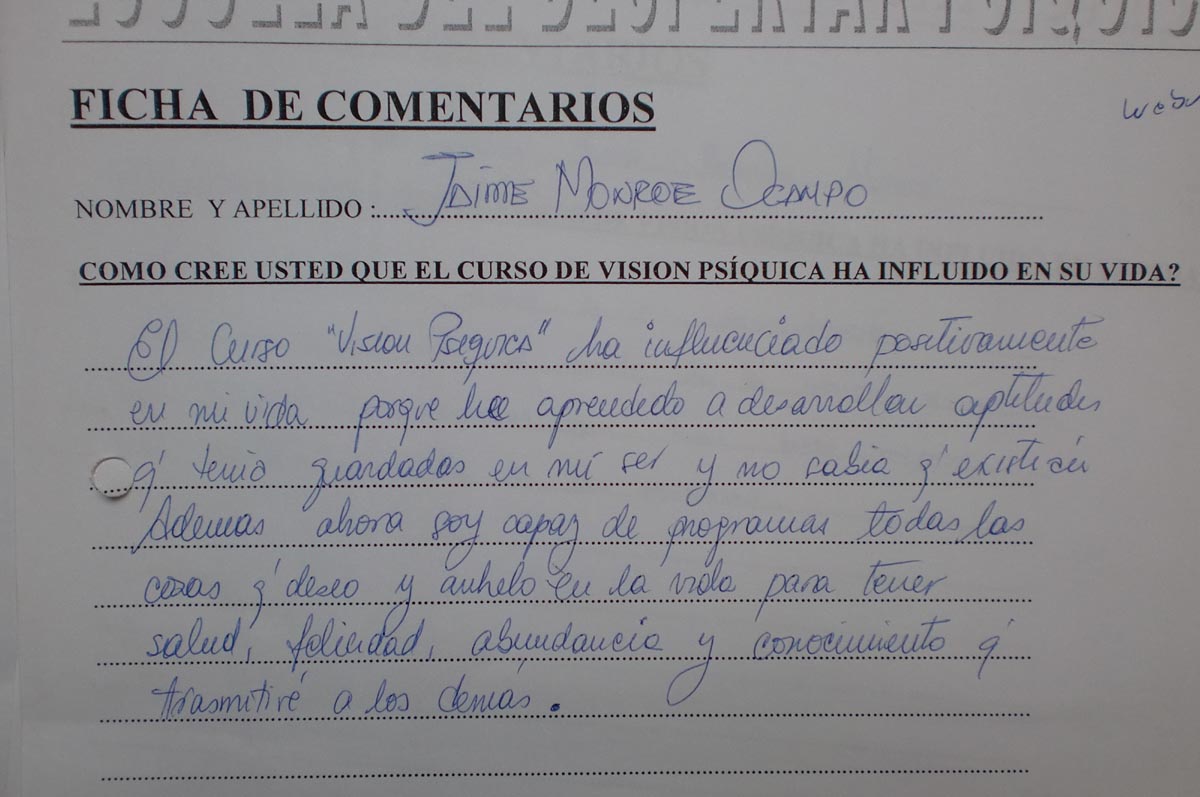 ESCUELA DEL DESPERTAR PSIQUIC
FICHA DE COMENTARIOS
NOMBRE Y APELLIDO : JAIME MONROE OCAMPO
COMO CREE USTED QUE EL CURSO DE VISION PSÍQUICA HA INFLUIDO EN SU VIDA?
El Curso "Vision Psiquica" ha influenciado positivamente
en mi vida porque he aprendido a desarrollar aptitudes
q' tenia guardadas en mi ser y no sabia q' existían
Ademas ahora soy capaz de programar todas las
cosas q' deseo y anhelo en la vida para tener
salud, felicidad, abundancia y conocimiento q'
trasmitiré a los demás.